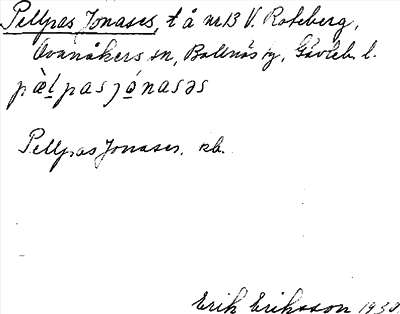 Pellpas Jonases, t å nr 13 V. Roteberg,
Ovanåkers sn, Bollnäs tg, Gävleb. l.
pæ̀lpasjónasəs
Pellpas Jonases. kb.
Erik Eriksson 1938.